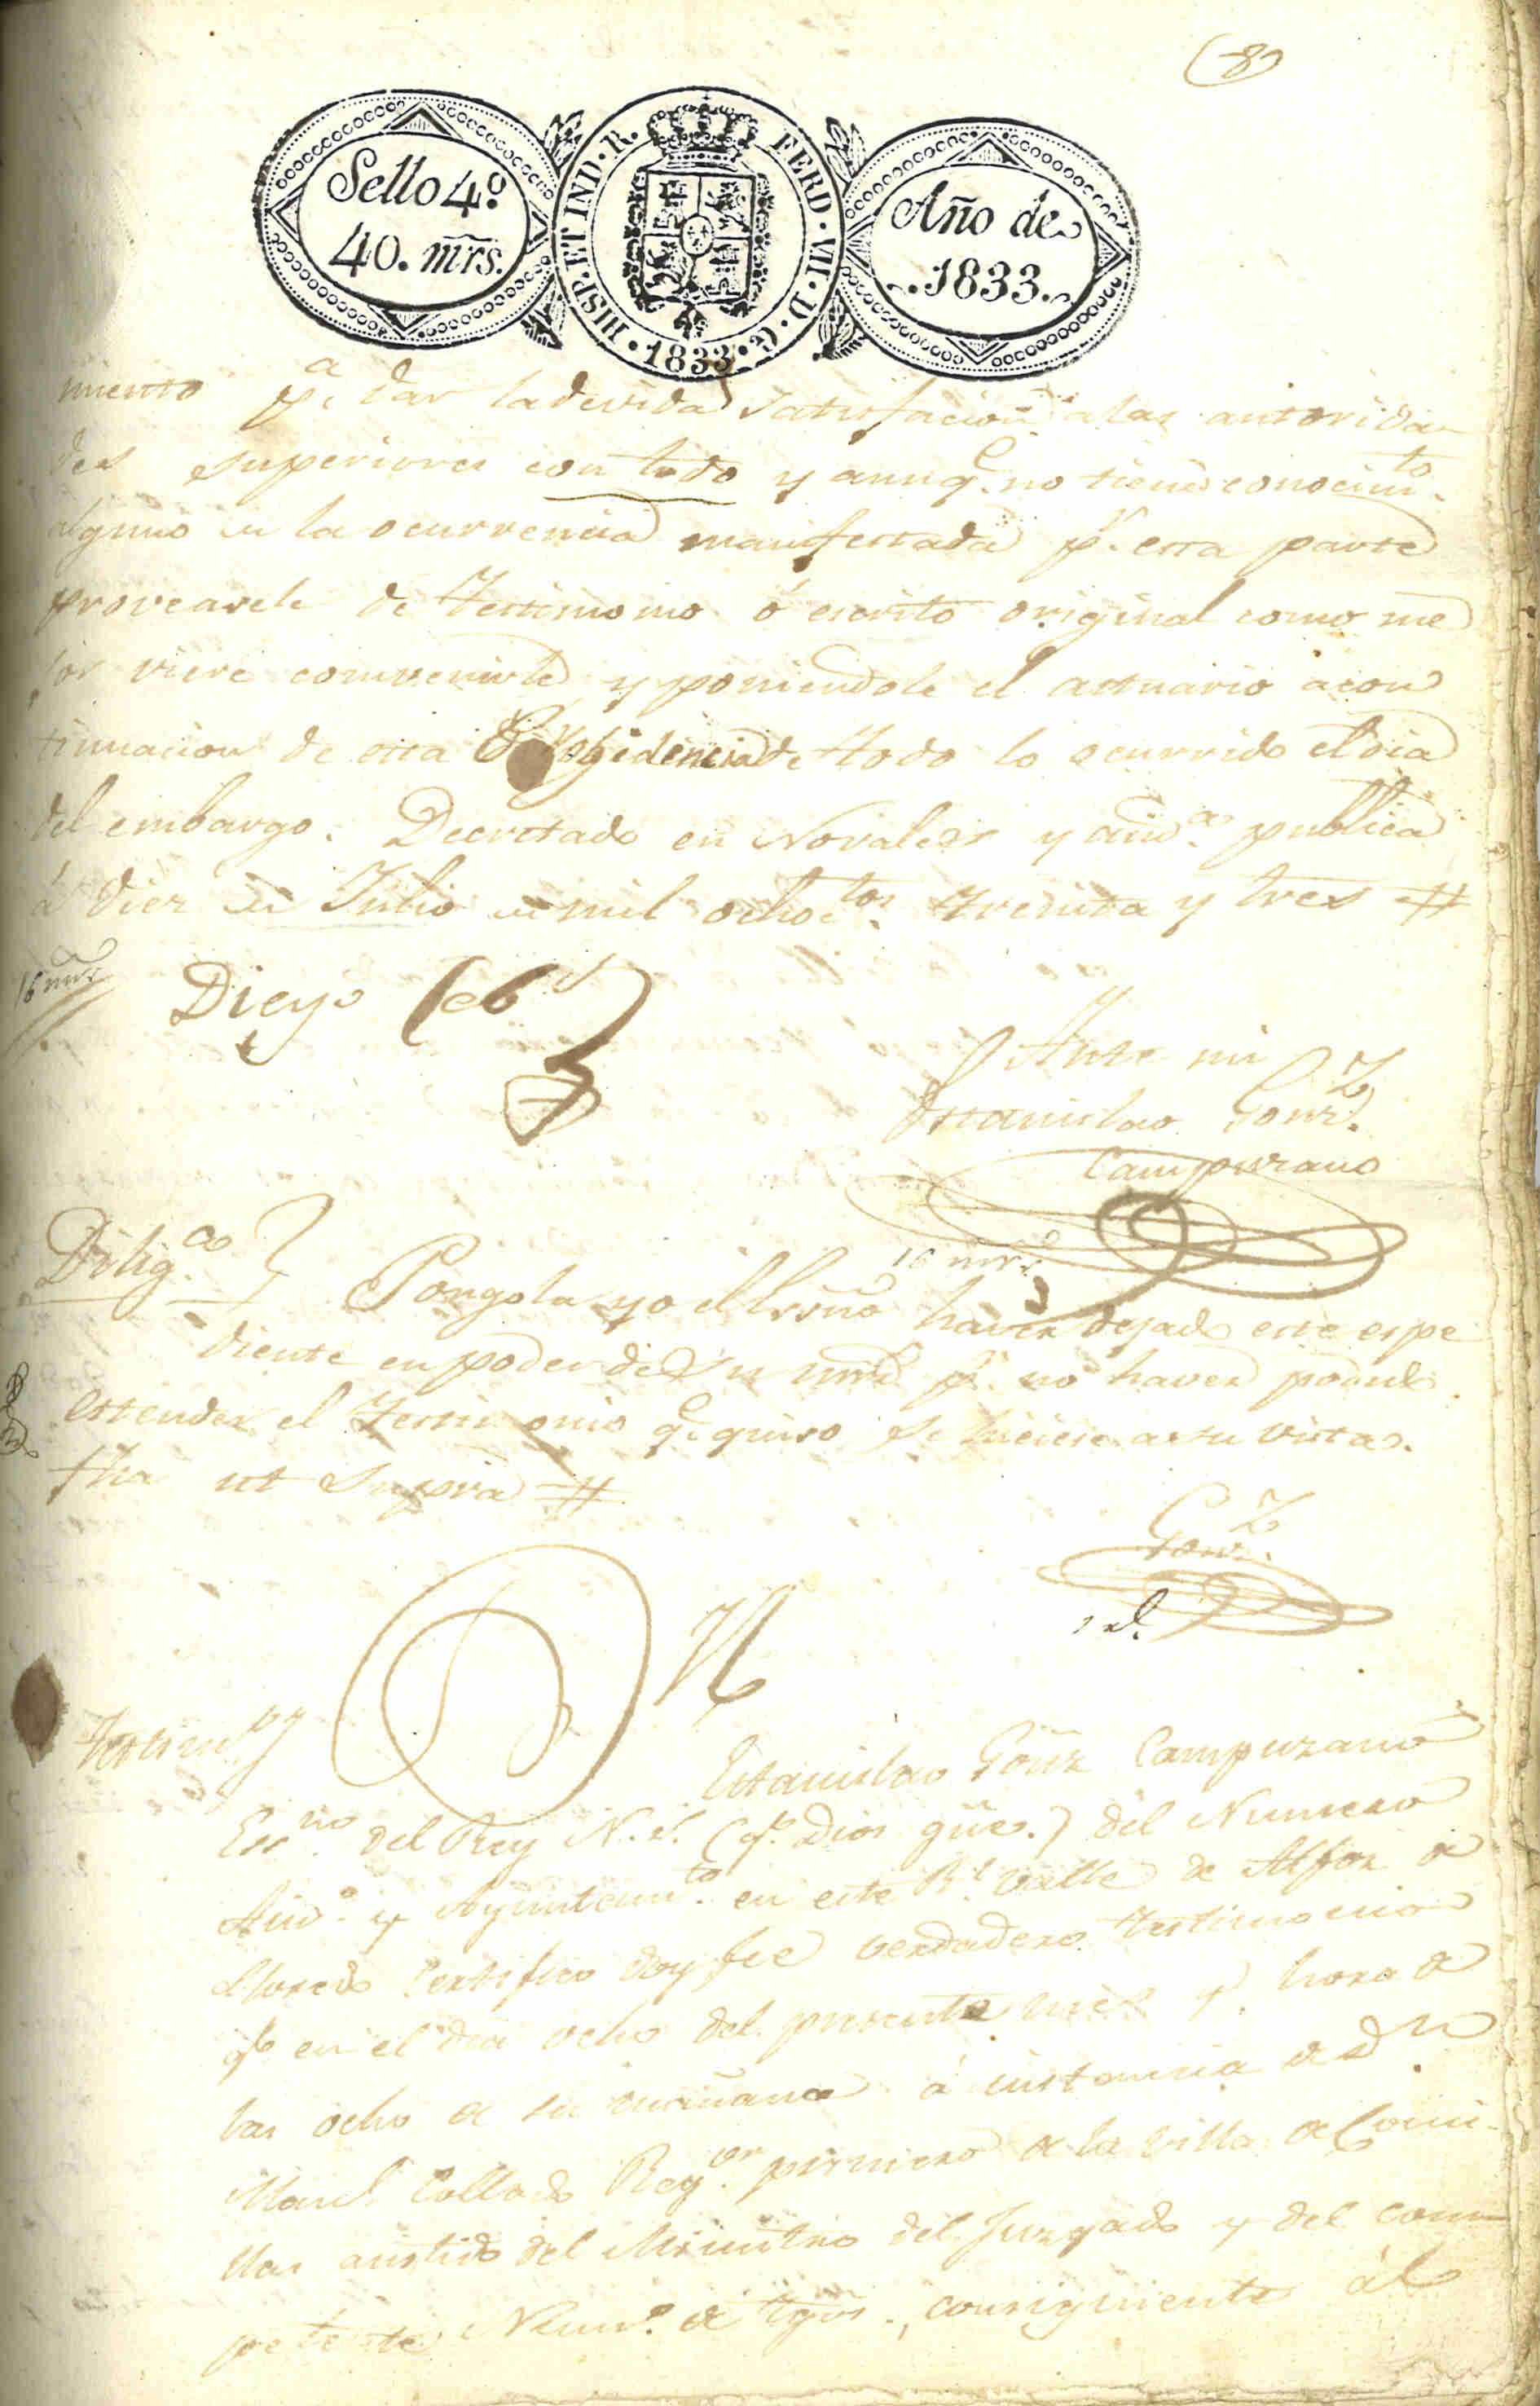 (8)
Sello 4º
40. mrs.
HISP. ET IND. R. FERD. VII. D. G.
1833
Año de
1833.
miento pª. dar la devida satisfacion a las autorida
des superiores con todo y aunqe. no tiene conocimto.
alguno de la ocurrencia manifestada pr. esta parte
proveasele de Testimonio ó escrito original como me
jor viere convenirle y poniendole el actuario a con
tinuacion de esta de todo lo ocurrido el dia
del embargo. Decretado en Novales y audª. publica
á diez de Julio de mil ochoctos. treinta y tres #
16 mrs
Diego
Ante mi
Estanislao Gonz.
Campuzano
16 mrs
Diligª.
Pongola yo el Essno haver dejado este espe
diente en poder de Su mrd pr. no haver podido
estender el Testimonio qe. quiso se hiciese a su vista.
fha ut supra #
Gonz.
1 rl.
Testimo
Estanislao Gonz Campuzano
Essno. del Rey N. S. (q. Dios gue.) del Numero
Audª. y Ayuntamto. en este Rl. Valle de Alfoz de
Lloredo Certifico doy fee verdadero testimonio
qe en el dia ocho del presente mes y hora de
las ocho de su mañana á instancia de Dn.
Manl. Collado Regor. primero de la Villa de Comi-
llas asistido del Ministro del Juzgado y del com
petente Numº. de tgos., consiguiente al